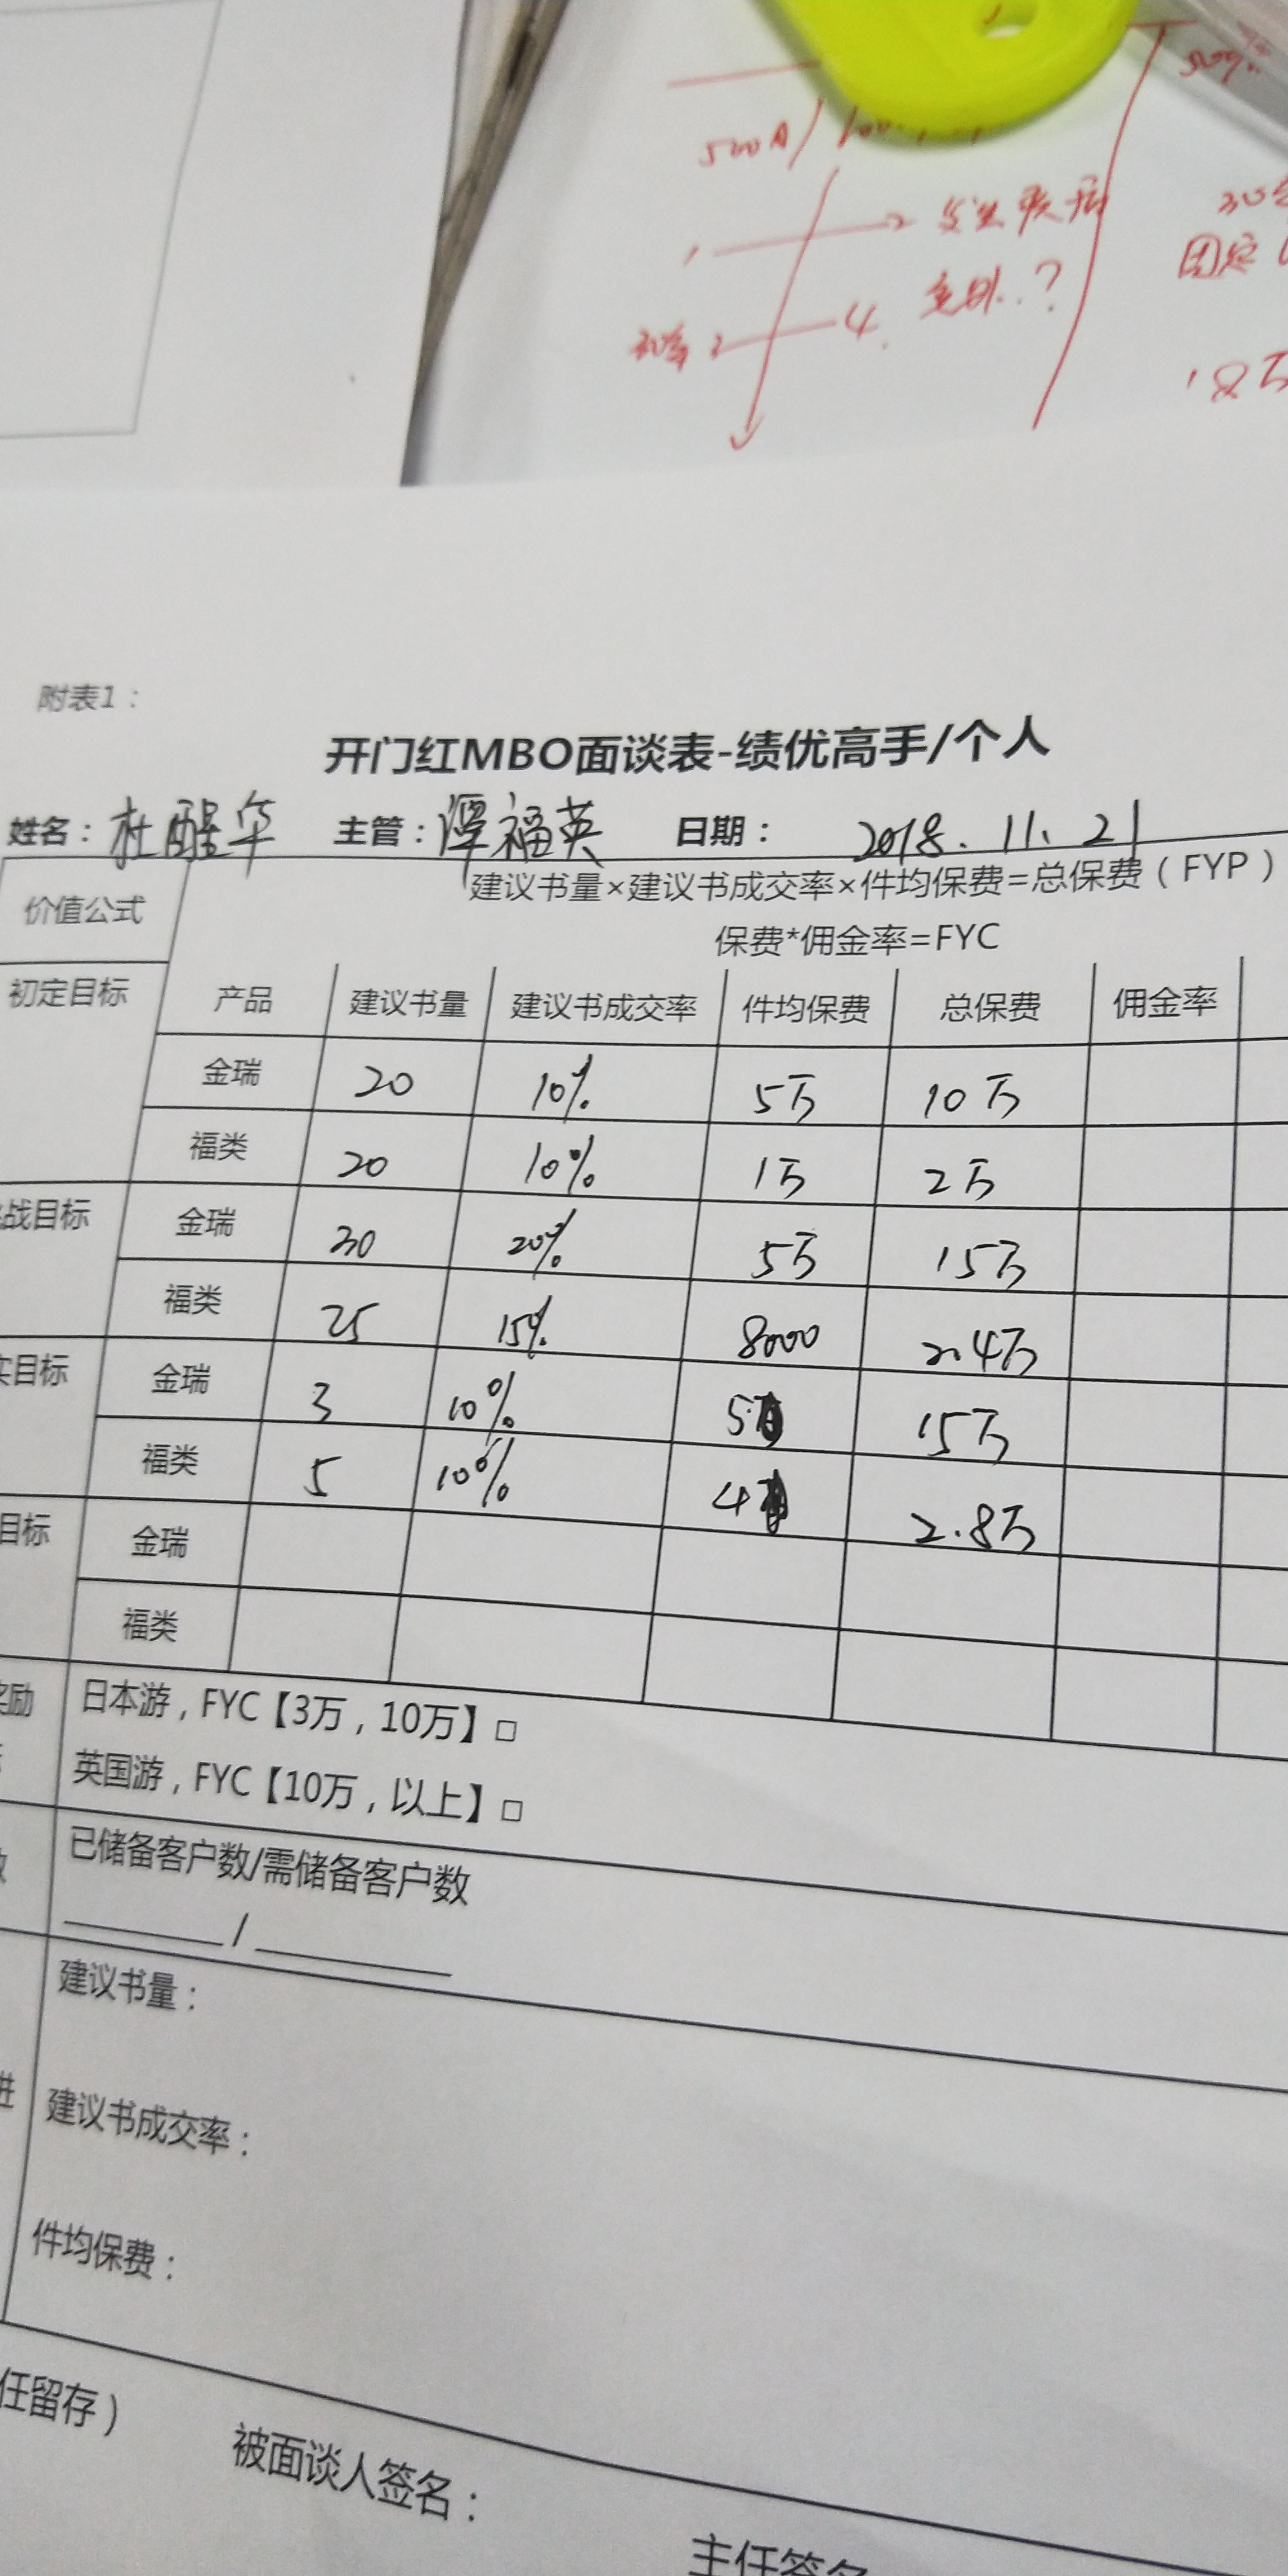 500A/
50%
1 → 2 发生疾病
意外..?
30年 2 4
固定
18万
附表1：
开门红MBO面谈表-绩优高手/个人
姓名：杜醒华 主管：谭福英 日期： 2018.11.21
价值公式 建议书量×建议书成交率×件均保费=总保费（FYP）
保费*佣金率=FYC
初定目标 产品 建议书量 建议书成交率 件均保费 总保费 佣金率
金瑞 20 10% 5万 10万
福类 20 10% 1万 2万
战目标 金瑞 30 20% 5万 15万
福类 25 15% 8000 2.4万
实目标 金瑞 3 10% 5 15万
福类 5 10% 4 2.8万
目标 金瑞
福类
奖励 日本游，FYC【3万，10万】□
英国游，FYC【10万，以上】□
已储备客户数/需储备客户数
/
建议书量：
进 建议书成交率：
件均保费：
任留存）
被面谈人签名：
主任签名